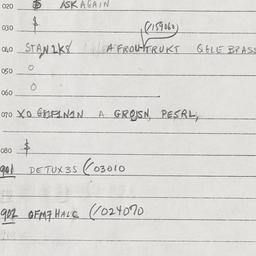 020 $ ASK AGAIN
030 $ (/159060)
040 STAN1K8 A FROUTRUKT
050 0
060 0
070 XO A GROJSN, PESRL,
080 $
901 DETUX3S (/03010
902 OFM7HALC (/024070